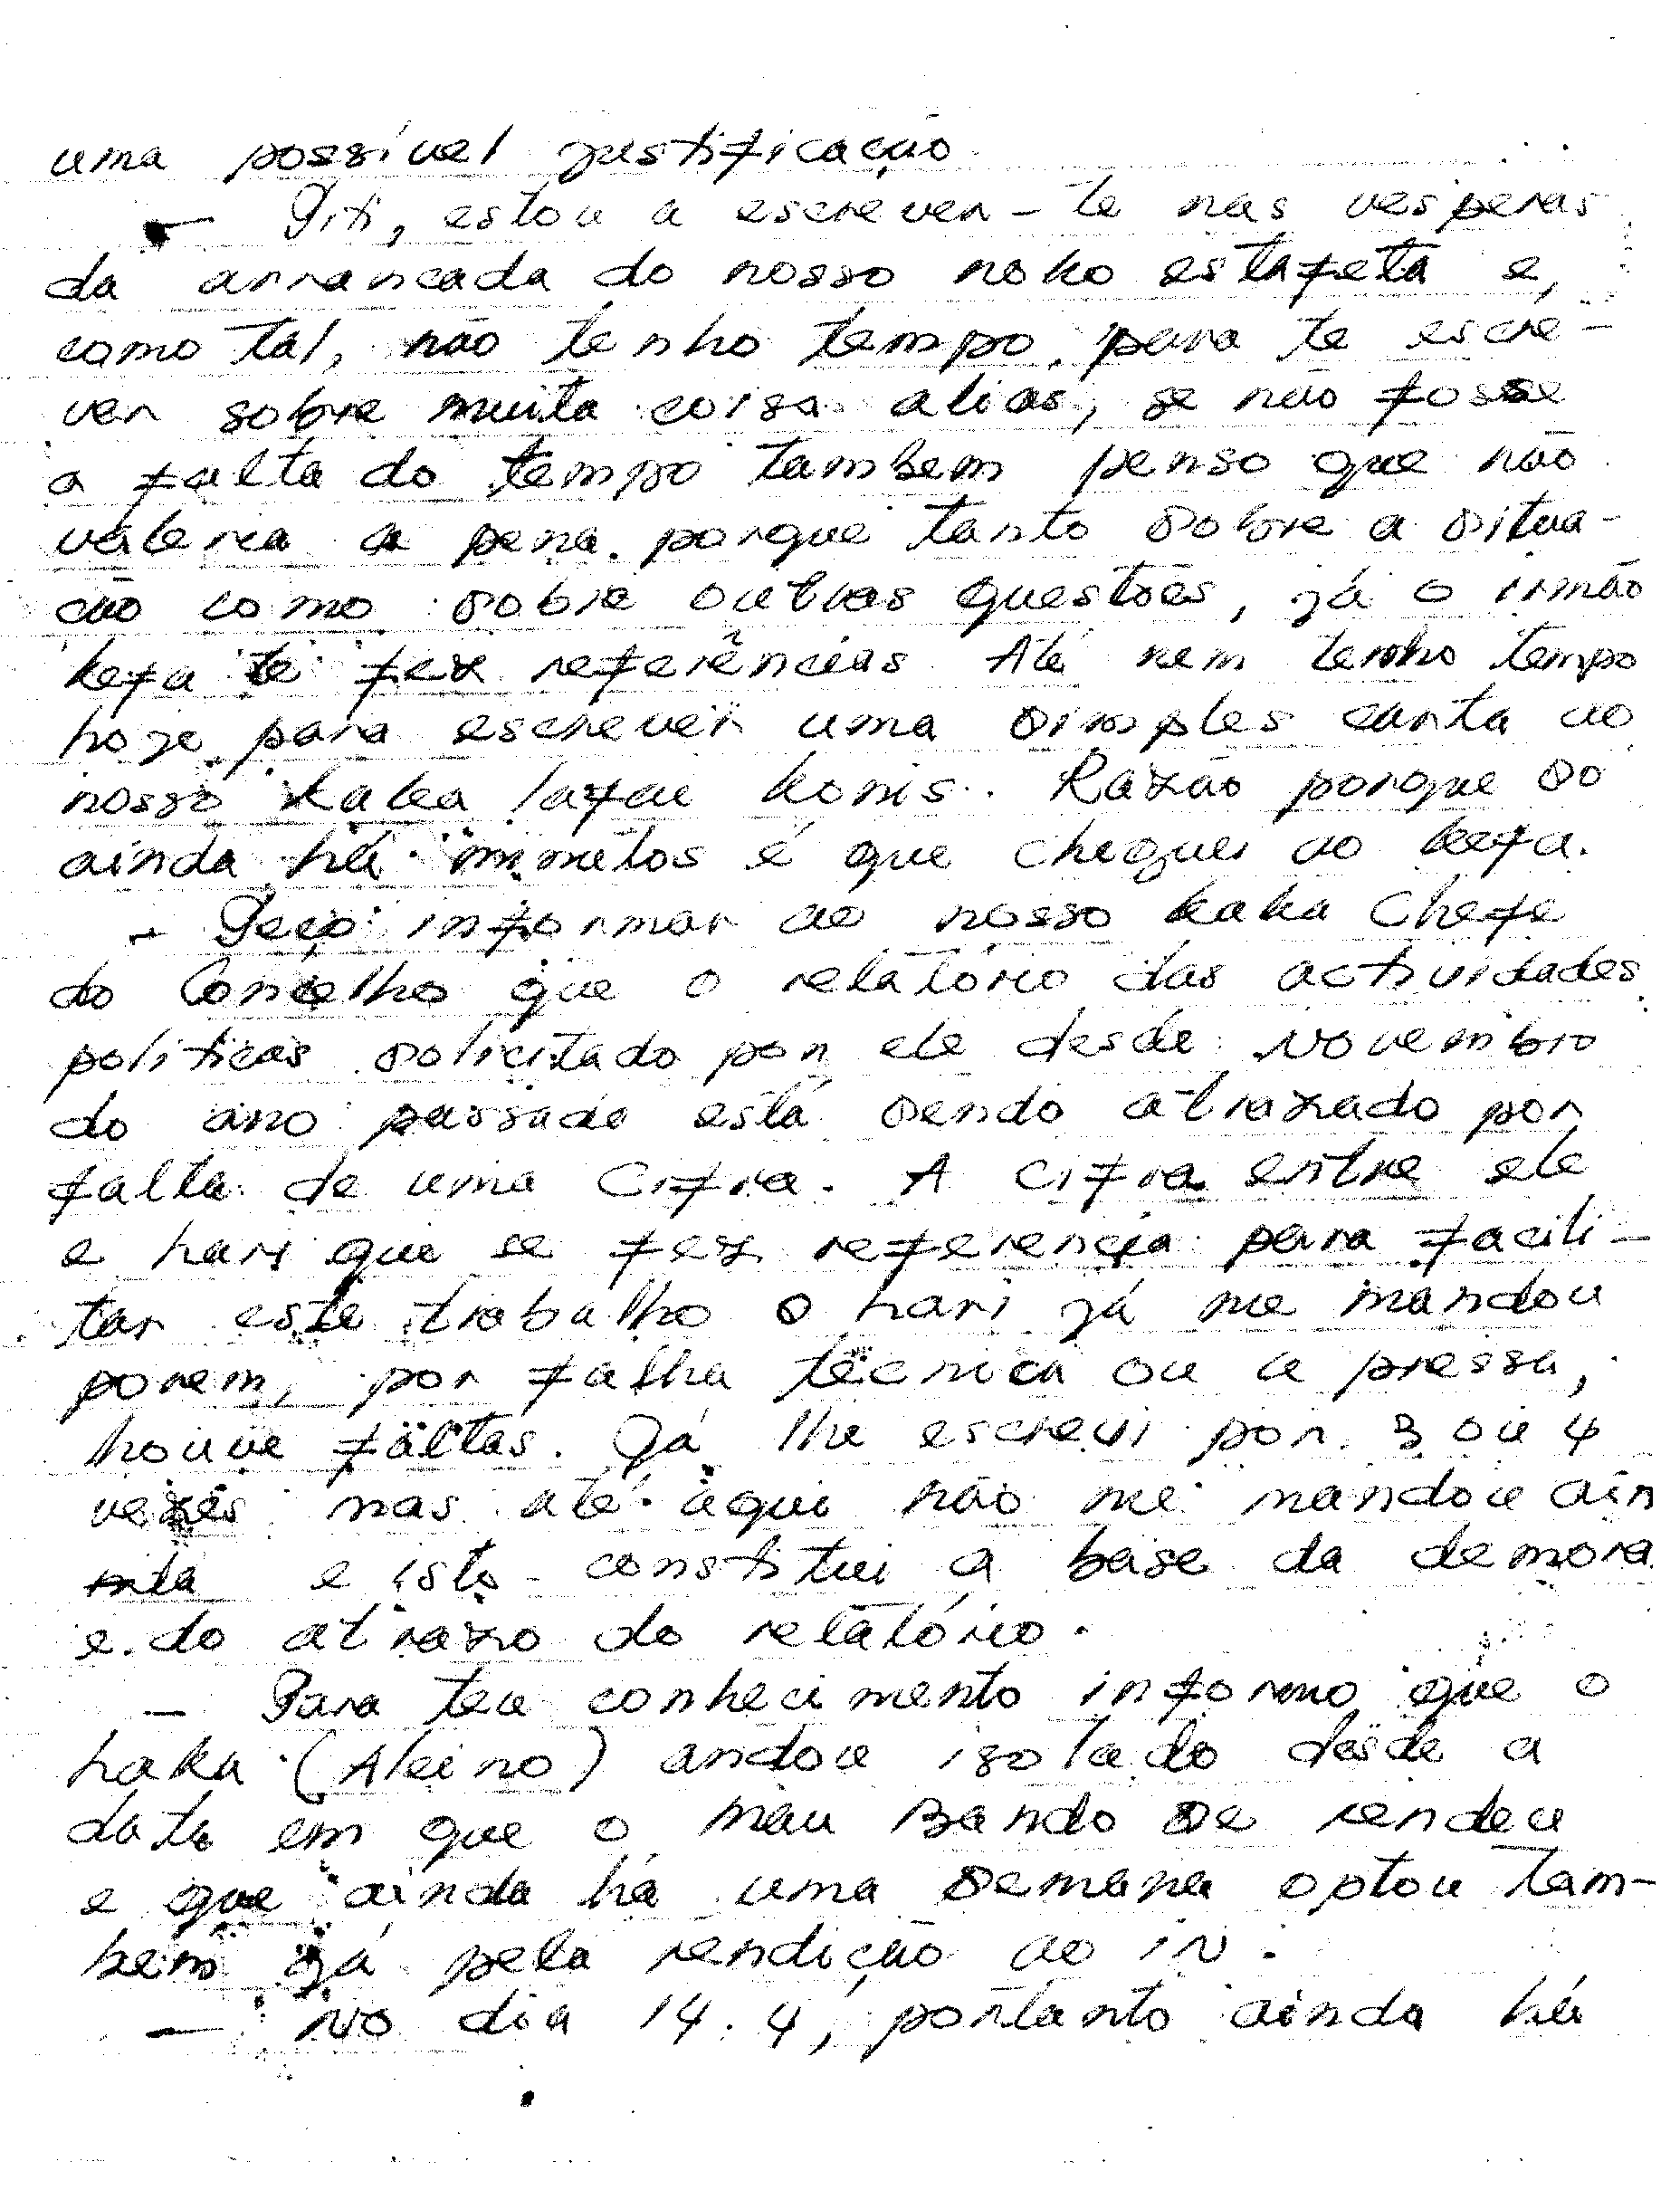 uma possível justificação
— Titi, estou a escrever-te nas vesperas
da arrancada do nosso noko estafeta e,
como tal, não tenho tempo para te escre-
ver sobre muita coisa alias, se não fosse
a falta do tempo tambem penso que não
valeria a pena porque tanto sobre a situa-
cão como sobre outras questões, já o irmão
kefa te fez referências. Até nem tenho tempo
hoje para escrever uma simples carta ao
nosso kaka lafae konis. Razão porque só
ainda há minutos é que cheguei ao kefa.
— Peço informar ao nosso kaka Chefe
do Concelho que o relatório das actividades
politicas solicitado por ele desde Novembro
do ano passado está sendo atrazado por
falta de uma Cifra. A cifra entre ele
e hari que se fez referencia para facili-
tar este trabalho o hari já me mandou
porem, por falha técnica ou a pressa,
houve faltas. Já lhe escrevi por 3 ou 4
vezes mas até aqui não me mandou ain
da e isto constitui a base da demora
e do atrazo do relatório.
— Para teu conhecimento informo que o
haka (Aleino) andou isolado desde a
data em que o mau Bando se rendeu
e que ainda há uma semana optou tam-
bem já pela rendição ao in.
— No dia 14.4, portanto ainda há